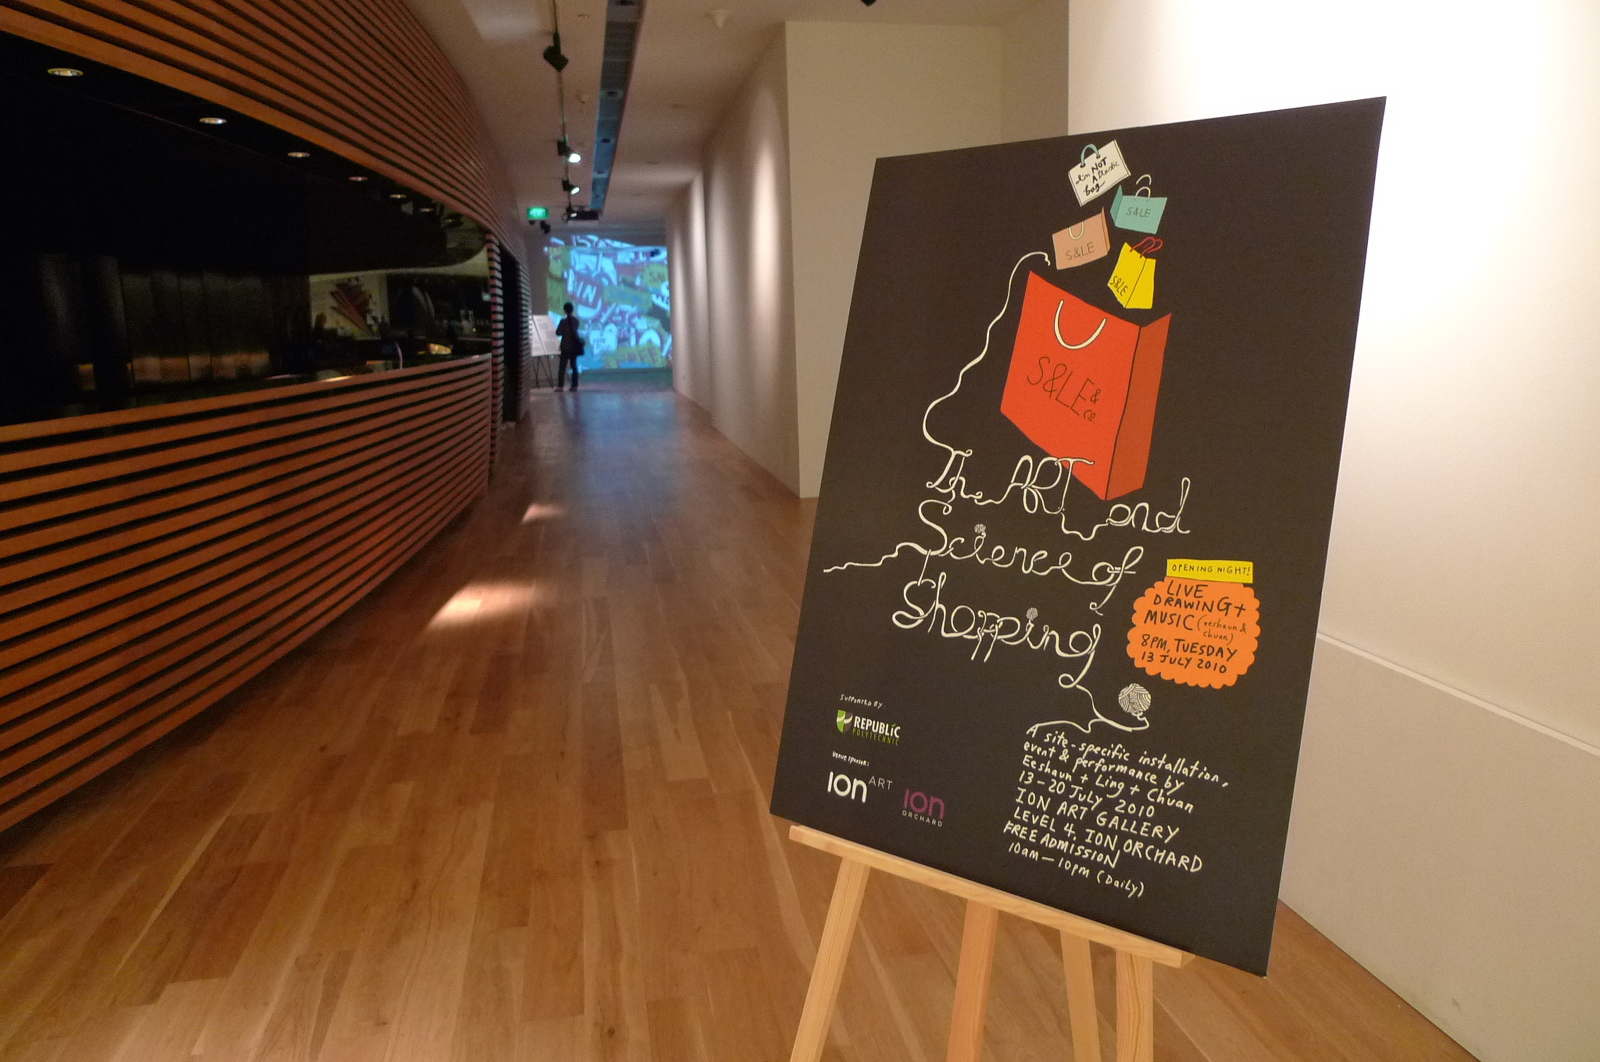 I'm NOT
A Plastic
bag
S&LE
S&LE
S&LE
S&LE &
co
The ART and
Science of
Shopping
OPENING NIGHT!
LIVE
DRAWING +
MUSIC (eeshaun &
chuan)
8PM, TUESDAY
13 JULY 2010
SUPPORTED BY
REPUBLIC
POLYTECHNIC
Venue sponsor:
ION ART
ION
ORCHARD
A site-specific installation,
event & performance by
Eeshaun + Ling + Chuan
13-20 July 2010
ION ART GALLERY
LEVEL 4, ION ORCHARD
FREE ADMISSION
10am—10pm (Daily)